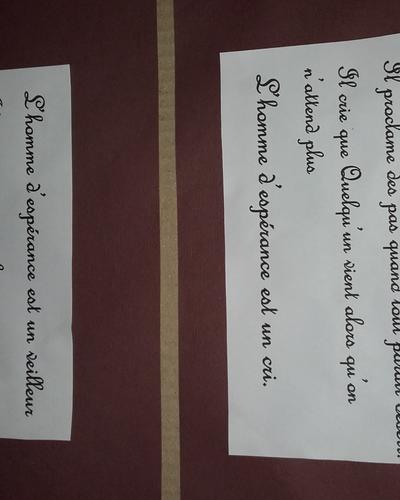 Il proclame des pas quand tout paraît
Il crie que Quelqu'un vient alors qu'on
n'attend plus
L'homme d'espérance est un cri.
L'homme d'espérance est un veilleur